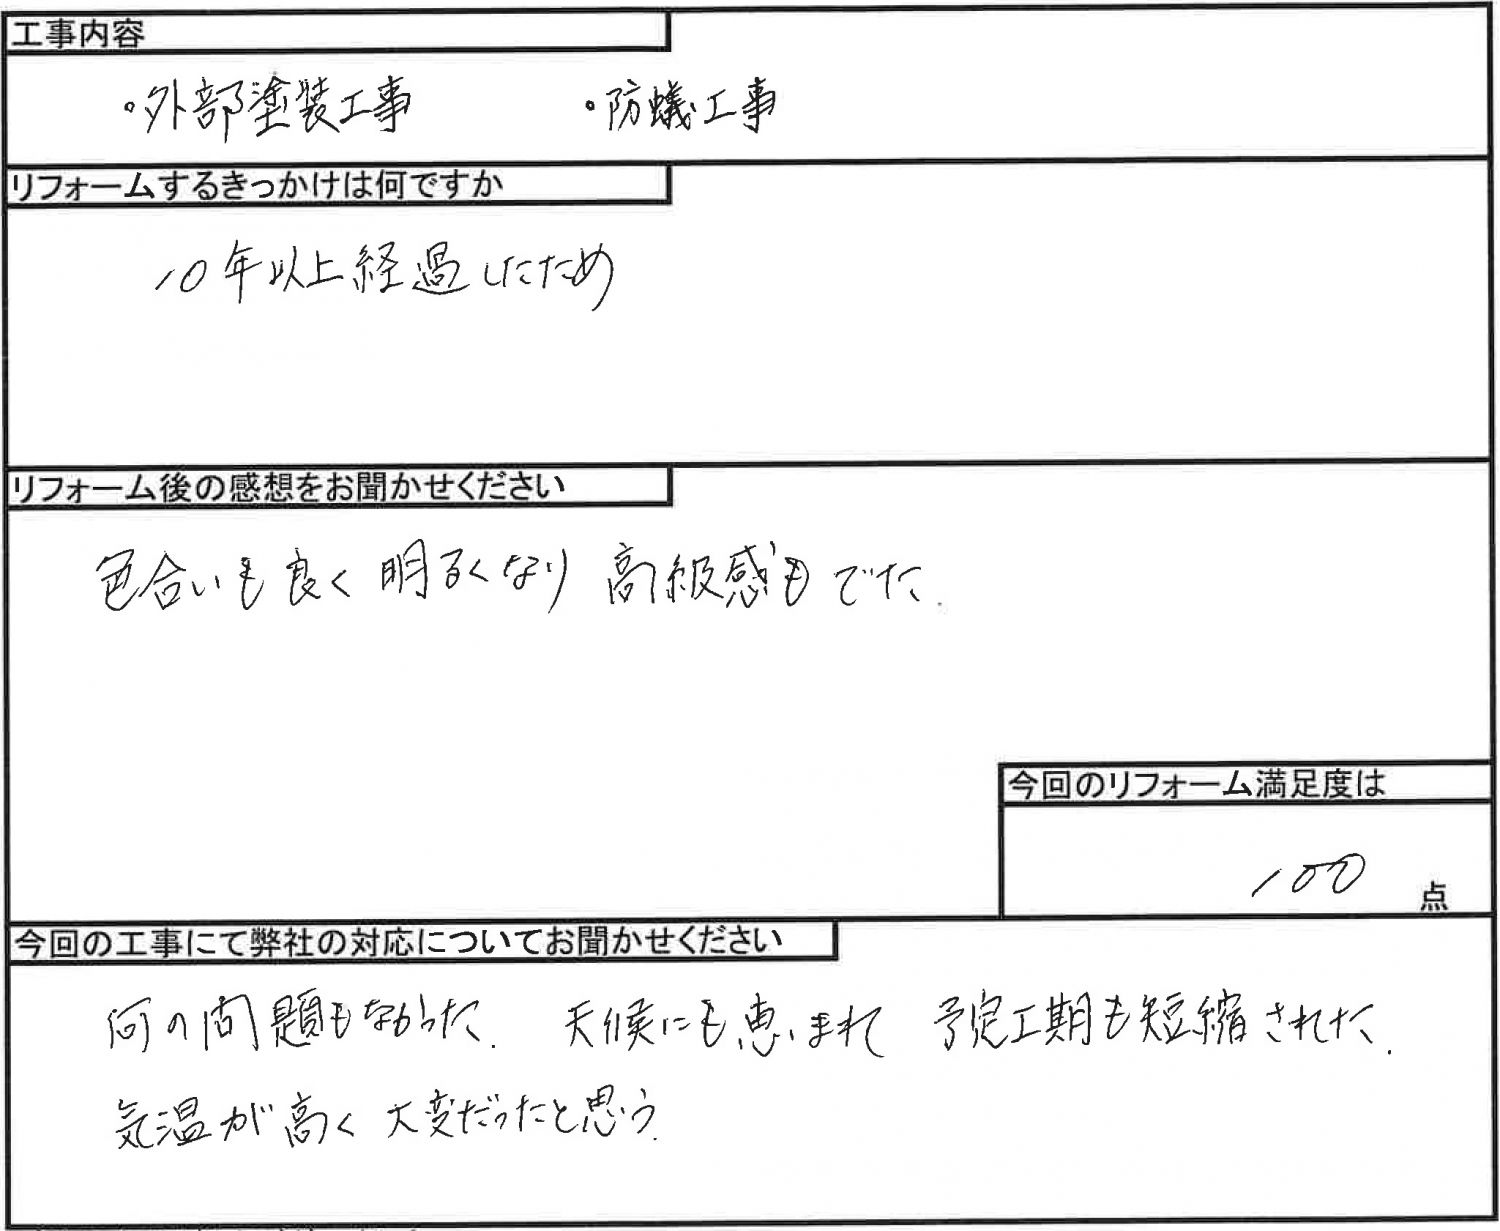 工事内容
・外部塗装工事　・防蟻工事
リフォームするきっかけは何ですか
10年以上経過したため
リフォーム後の感想をお聞かせください
色合いも良く 明るくなり 高級感もでた.
今回のリフォーム満足度は
100 点
今回の工事にて弊社の対応についてお聞かせください
何の問題もなかった. 天候にも恵まれ 予定工期も短縮された.
気温が高く 大変だったと思う.